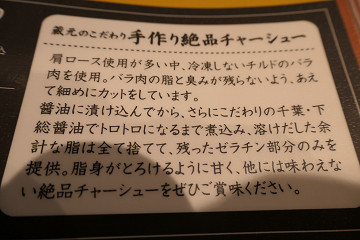 蔵元のこだわり 手作り絶品チャーシュー
肩ロース使用が多い中、冷凍しないチルドのバラ
肉を使用。バラ肉の脂と臭みが残らないよう、あえ
て細めにカットをしています。
醤油に漬け込んでから、さらにこだわりの千葉・下
総醤油でトロトロになるまで煮込み、溶けだした余
計な脂は全て捨てて、残ったゼラチン部分のみを
提供。脂身がとろけるように甘く、他には味わえな
い絶品チャーシューをぜひご賞味ください。